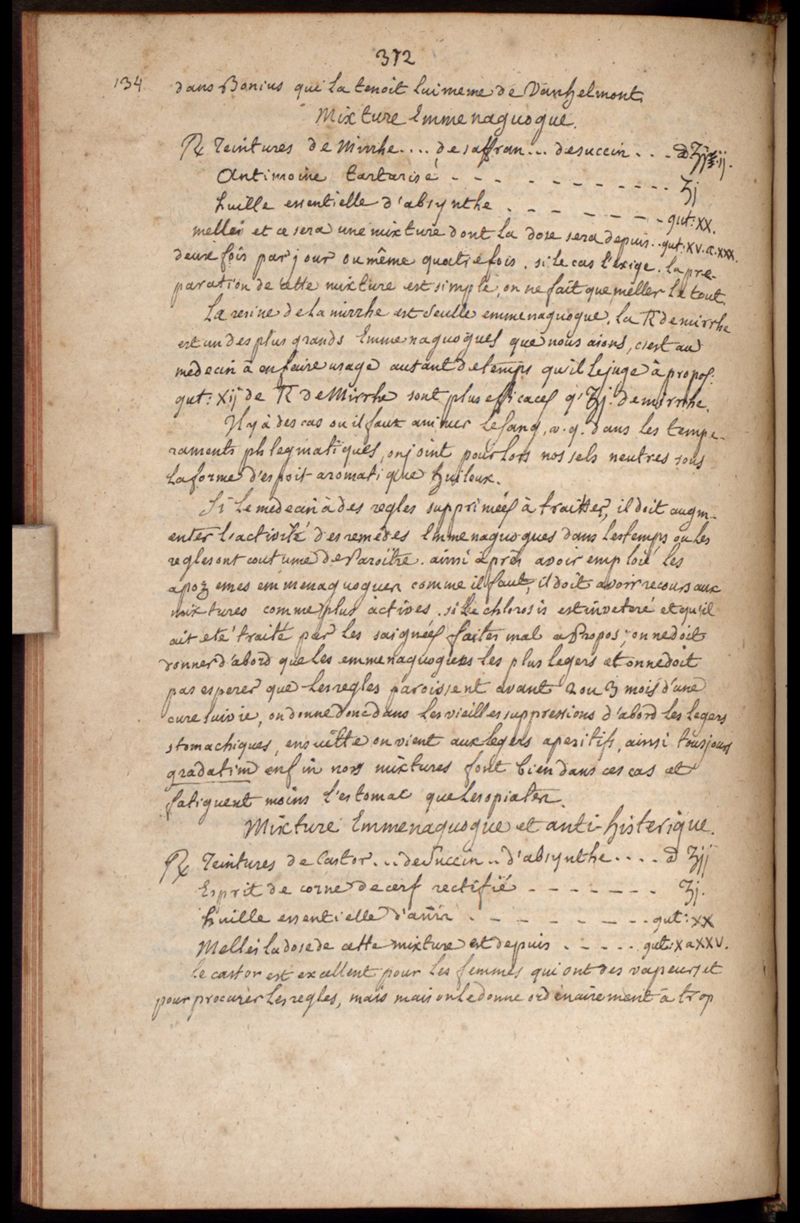 372
134 dans Bonius que la tenoit lui meme de Vanhelmont.
Mixture Emmenaguogue.
℞ Teintures de Mirrhe.... de saffran... de succin...
Antimoine tartarisé - - - - - - - - ʒj
huille essentielle d'absynthe - - - - - - - gut: XX.
mellés et ce sera une mixture dont la dose sera depuis.. gut: XV. a XXX
deux fois par jour ou même quatre fois. si le cas l'exige. la pre-
paration de cette mixture est simple, on ne fait que mêller le tout.
La resine de la mirrhe est seulle emmenaguogue. la Tr de mirrhe
est un des plus grands Emmenaguogues que nous aions, c'est au
médecin à en faire usage autant de temps qu'il le juge à propos.
gut: xij de Tr de Mirrhe sont plus efficaces q' ʒj. de mirrhe.
Il y à des cas ou il faut animer le sang, v. g. dans les tempe-
raments phlegmatiques, on joint pour lors nos sels neutres sous
la forme d'esprit aromatique huileux.
Si le medecin à des regles supprimées à traitter, il doit augm-
enter l'activité des remedes Emmenaguogues dans les temps ou les
regles ont coutume de Paroître. ainsi après avoir emploié les
apozemes emmenaguogues comme il faut, il doit avoir recours aux
mixtures comme plus actives. si le chlorosis est inveteré et qu'il
ait eté traité par les saignées faites mal a Propos; on ne doit
donner d'abord que les emmenaguogues les plus legers et on ne doit
pas esperer que les regles paroissent avant 2 ou 3 mois d'une
cure suivie, on donne donc dans les vieilles suppressions d'abord les legers
stomachiques, ensuitte on vient aux legers aperitifs, ainsi tousjours
gradatim enfin nos mixtures font bien dans ces cas et
fatiguent moins l'estomac que les opiates.
Mixture Emmenaguogue et anti-histerique.
℞ Teintures de Castor... de Succin.. d'absynthe.... a ʒij
Esprit de corne de cerf rectifié - - - - - - - ʒj.
huille essentielle d'anis - - - - - - - - gut: XX
Mellés la dose de cette mixture est depuis - - - - - gut: X a XXV.
le castor est excellent pour les femmes qui ont des vapeurs et
pour procurer les regles, mais mais on le donne ordenairement à trop